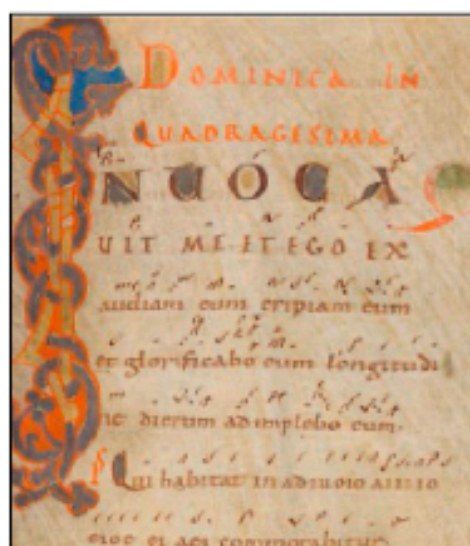 DOMINICA IN
QUADRAGESIMA
INUOCA
UIT ME ET EGO EX
audiam eum eripiam eum
et glorificabo eum longitudi
ne dierum adimplebo eum·
Qui habitat in
commorabitur